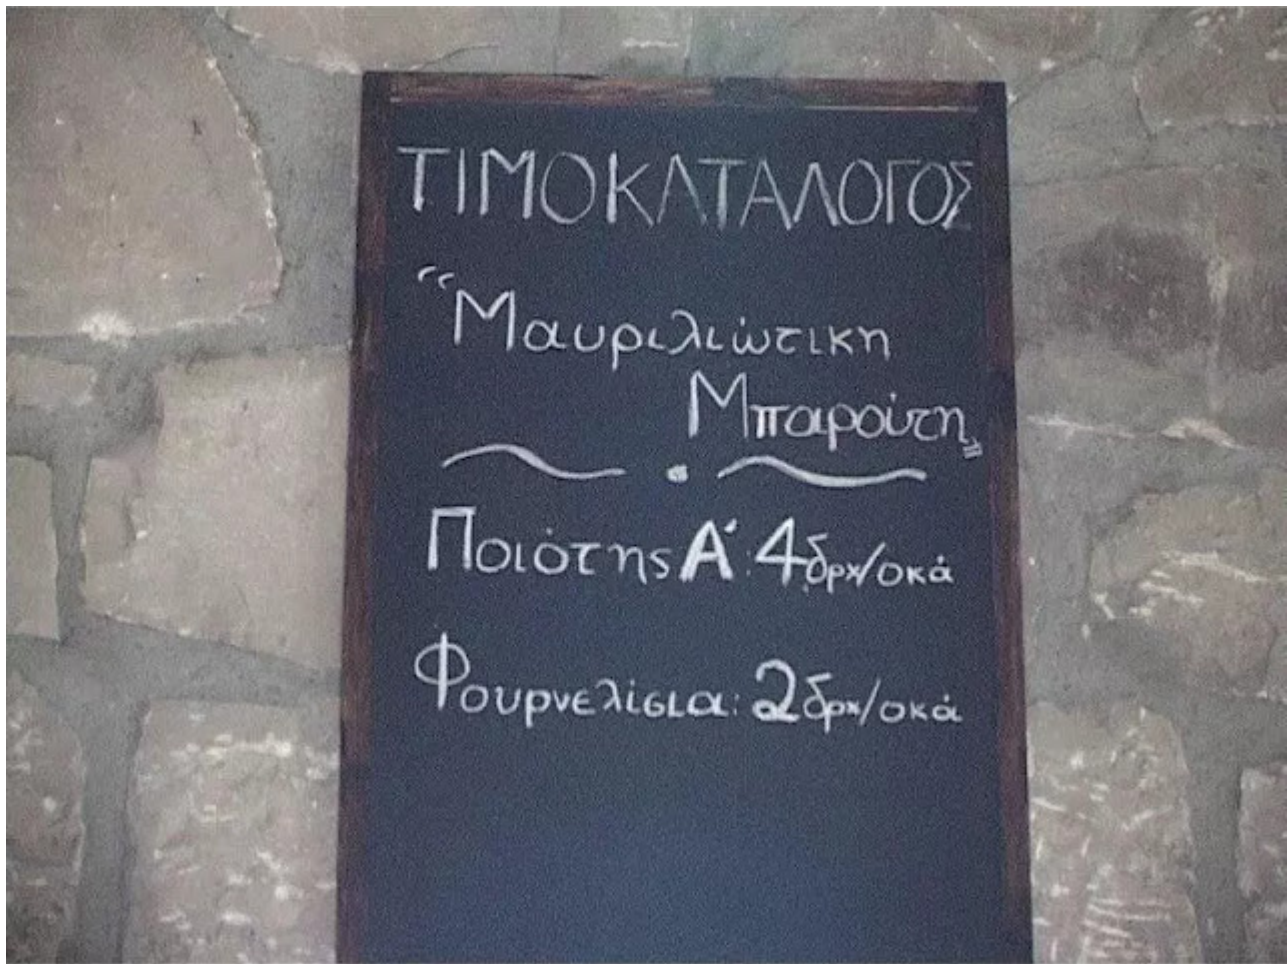 ΤΙΜΟΚΑΤΑΛΟΓΟΣ
“Μαυριλιώτικη
Μπαρούτη„
Ποιότης Α΄: 4 δρχ/οκά
Φουρνελίσια: 2 δρχ/οκά